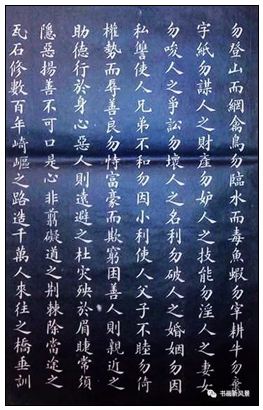 勿登山而網禽鳥勿臨水而毒魚蝦勿宰耕牛勿棄
字紙勿謀人之財產勿妒人之技能勿淫人之妻女
勿唆人之爭訟勿壞人之名利勿破人之婚姻勿因
私讐使人兄弟不和勿因小利使人父子不睦勿倚
權勢而辱善良勿恃富豪而欺窮困善人則親近之
助德行於身心惡人則遠避之杜災殃於眉睫常須
隱惡揚善不可口是心非翦礙道之荊棘除當途之
瓦石修數百年崎嶇之路造千萬人來往之橋垂訓
书画新风景